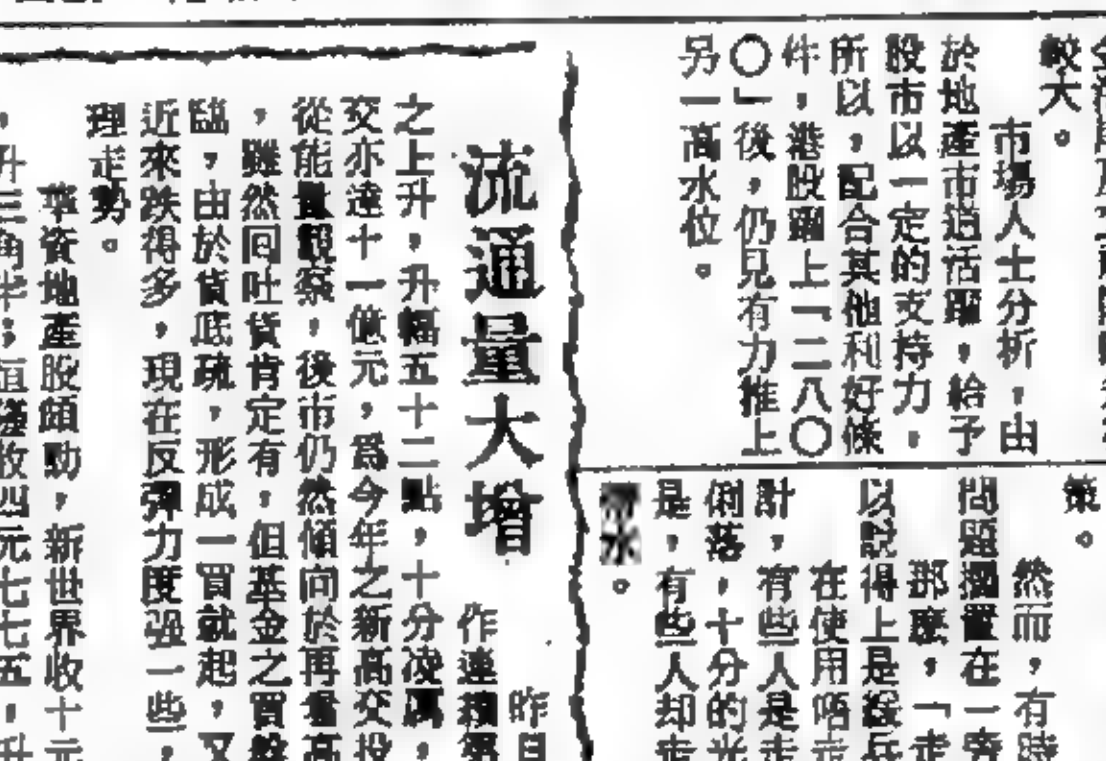 較大。
市場人士分析，由
於地產市道活躍，給予
股市以一定的支持力，
所以，配合其他利好條
件，港股躍上「二八〇
〇」後，仍見有力推上
另一高水位。
策。
然而，有時
問題擱置在一旁
那麼，「走
以說得上是緩兵
在使用唔走
計，有些人是走
俐落，十分的光
是，有些人却走
流通量大增
昨日
之上升，升幅五十二點，十分凌厲，
交亦達十一億元，爲今年之新高交投
從能量觀察，後市仍然傾向於再看高
，雖然回吐貨肯定有，但基金之買盤
臨，由於貨底疏，形成一買就起，又
近來跌得多，現在反彈力度强一些，
理走勢。
華資地產股頗動，新世界收十元
，升三角半；恒隆收四元七七五，升